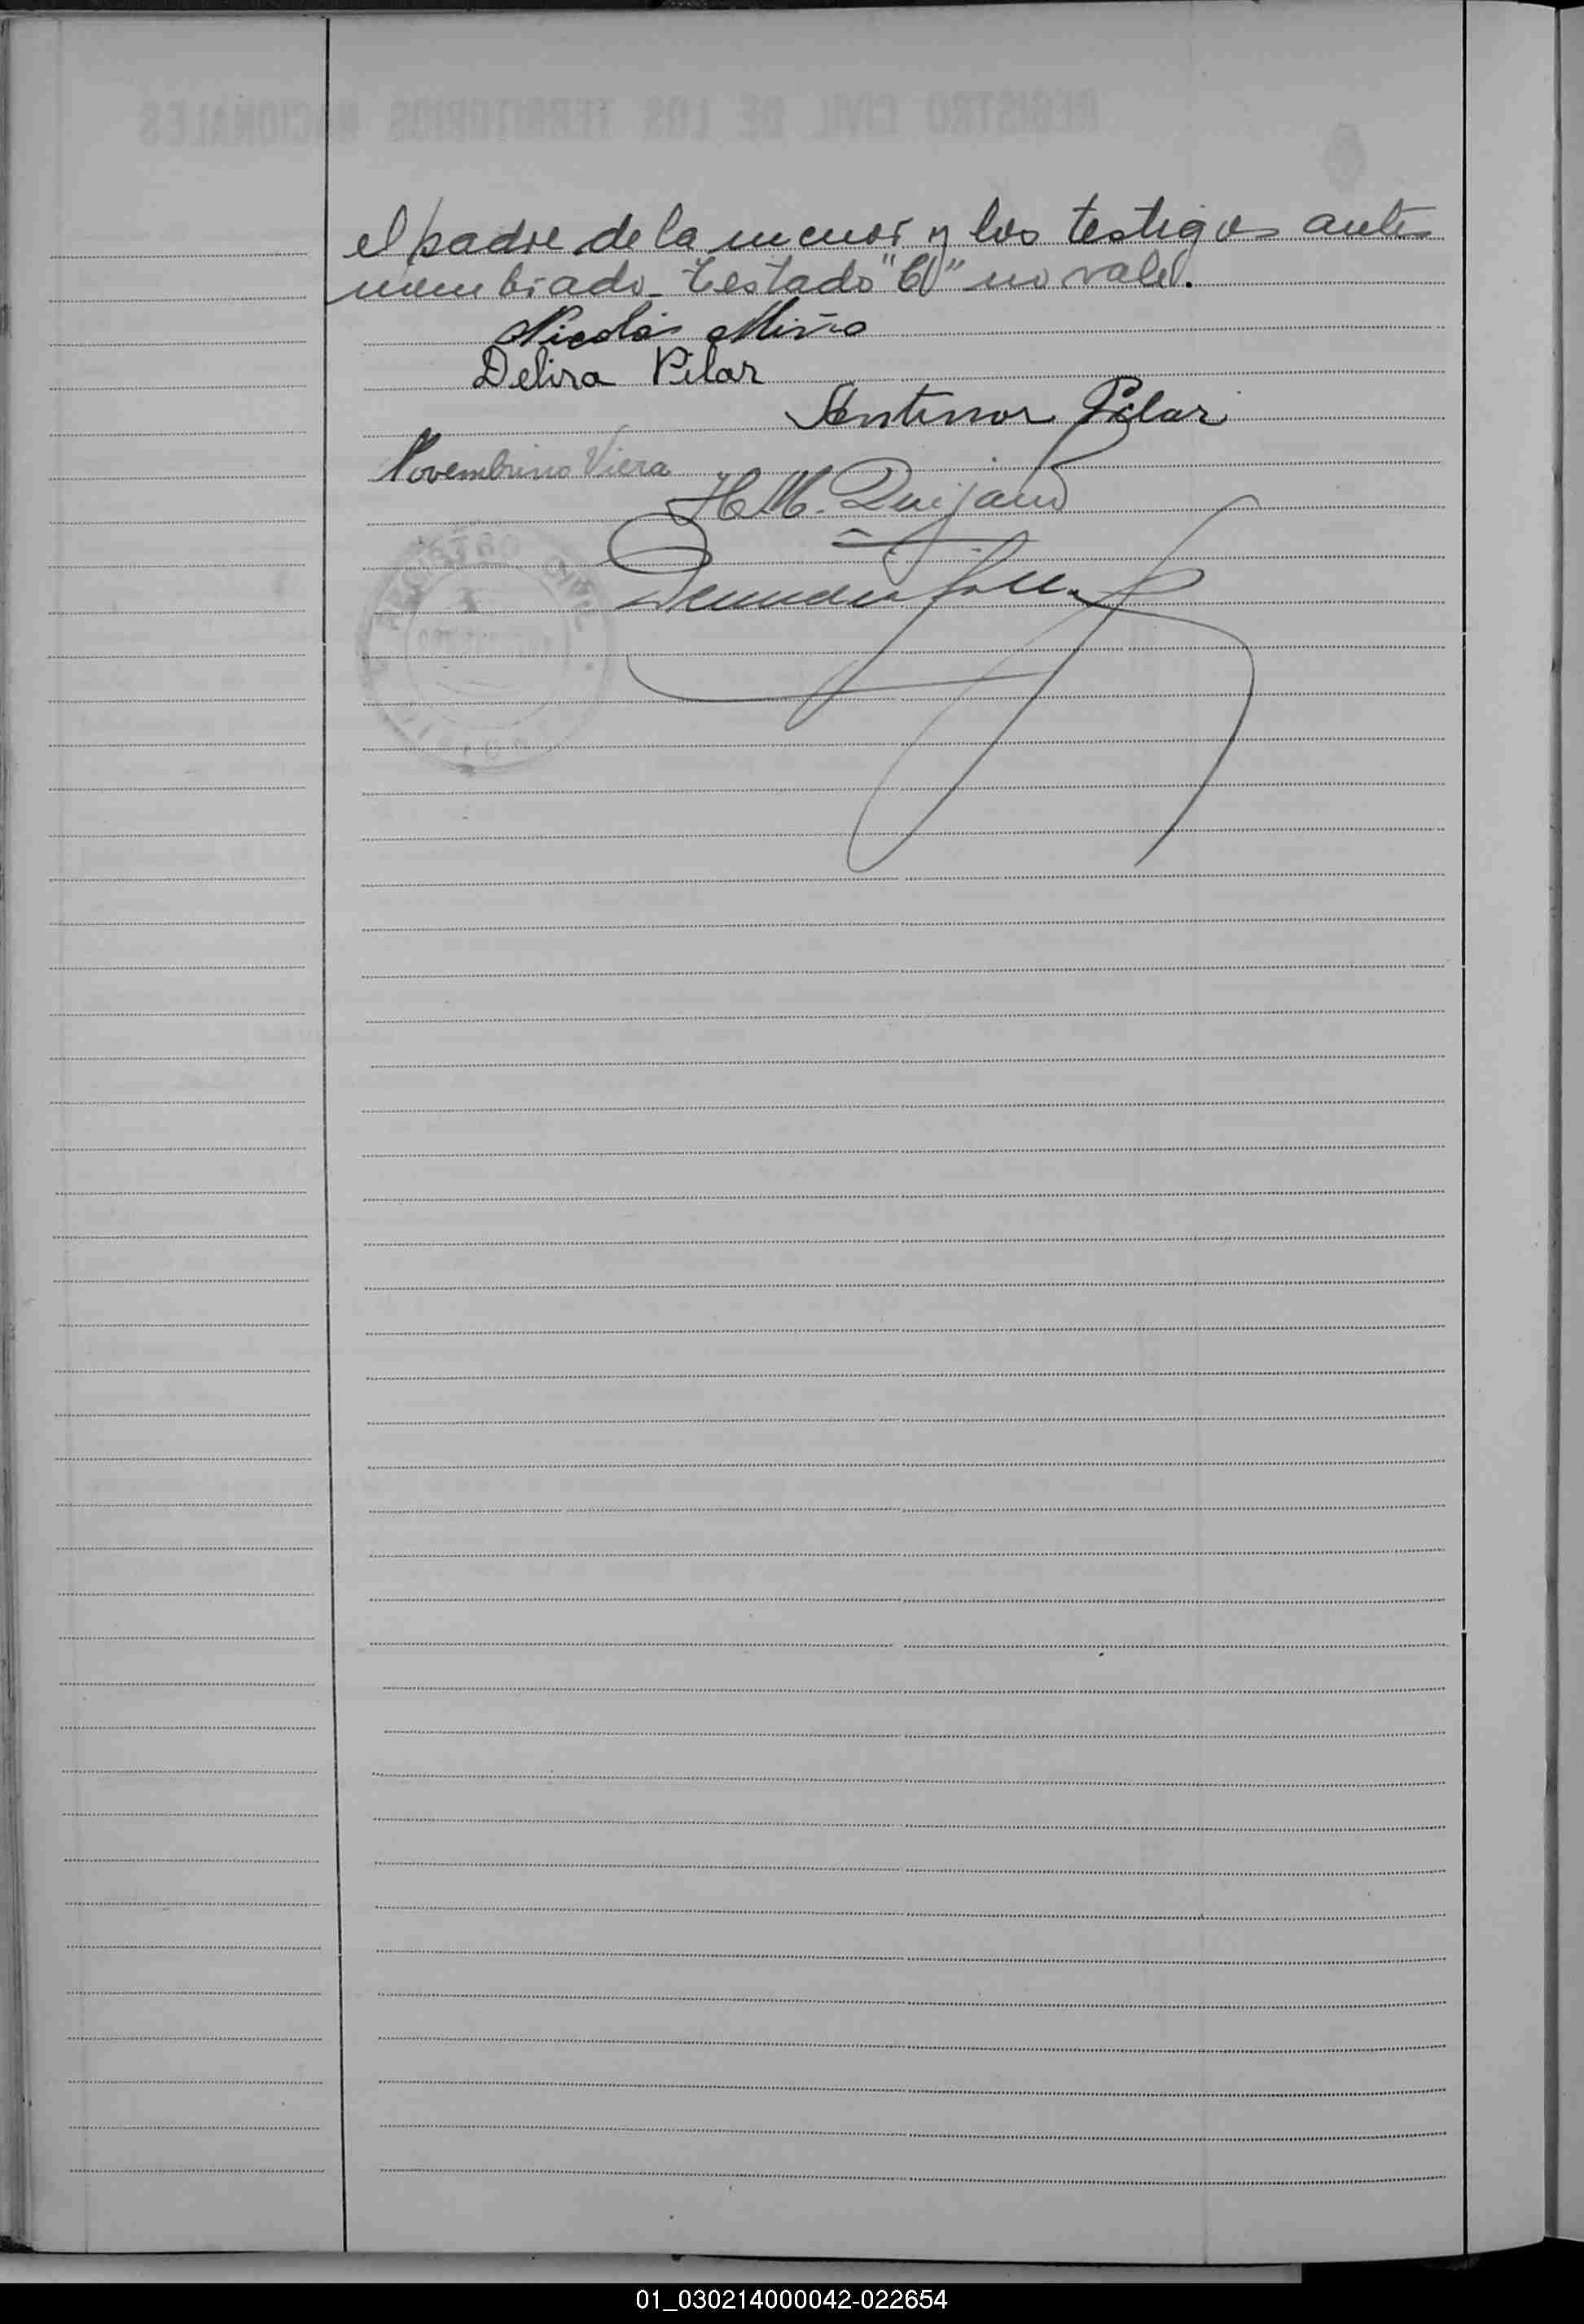 el padre de la menor y los testigos antes
nombrado - Testado "El" no vale.
Nicolás Miño
Delira Pilar
Antenor Pilar
Novembrino Viera
H. M. Quijano
REGISTRO CIVIL
01_030214000042-022654